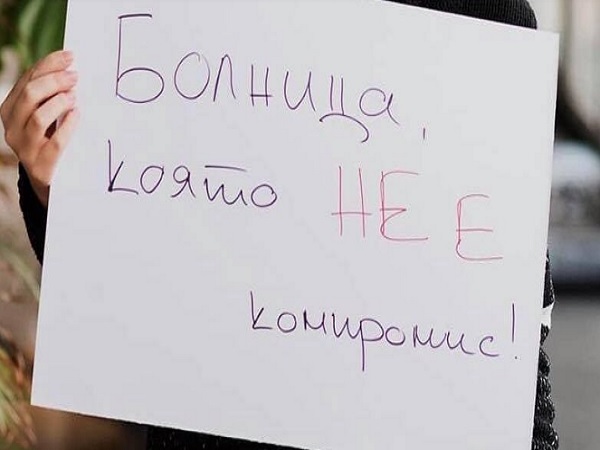 Болница,
която НЕ Е
компромис!